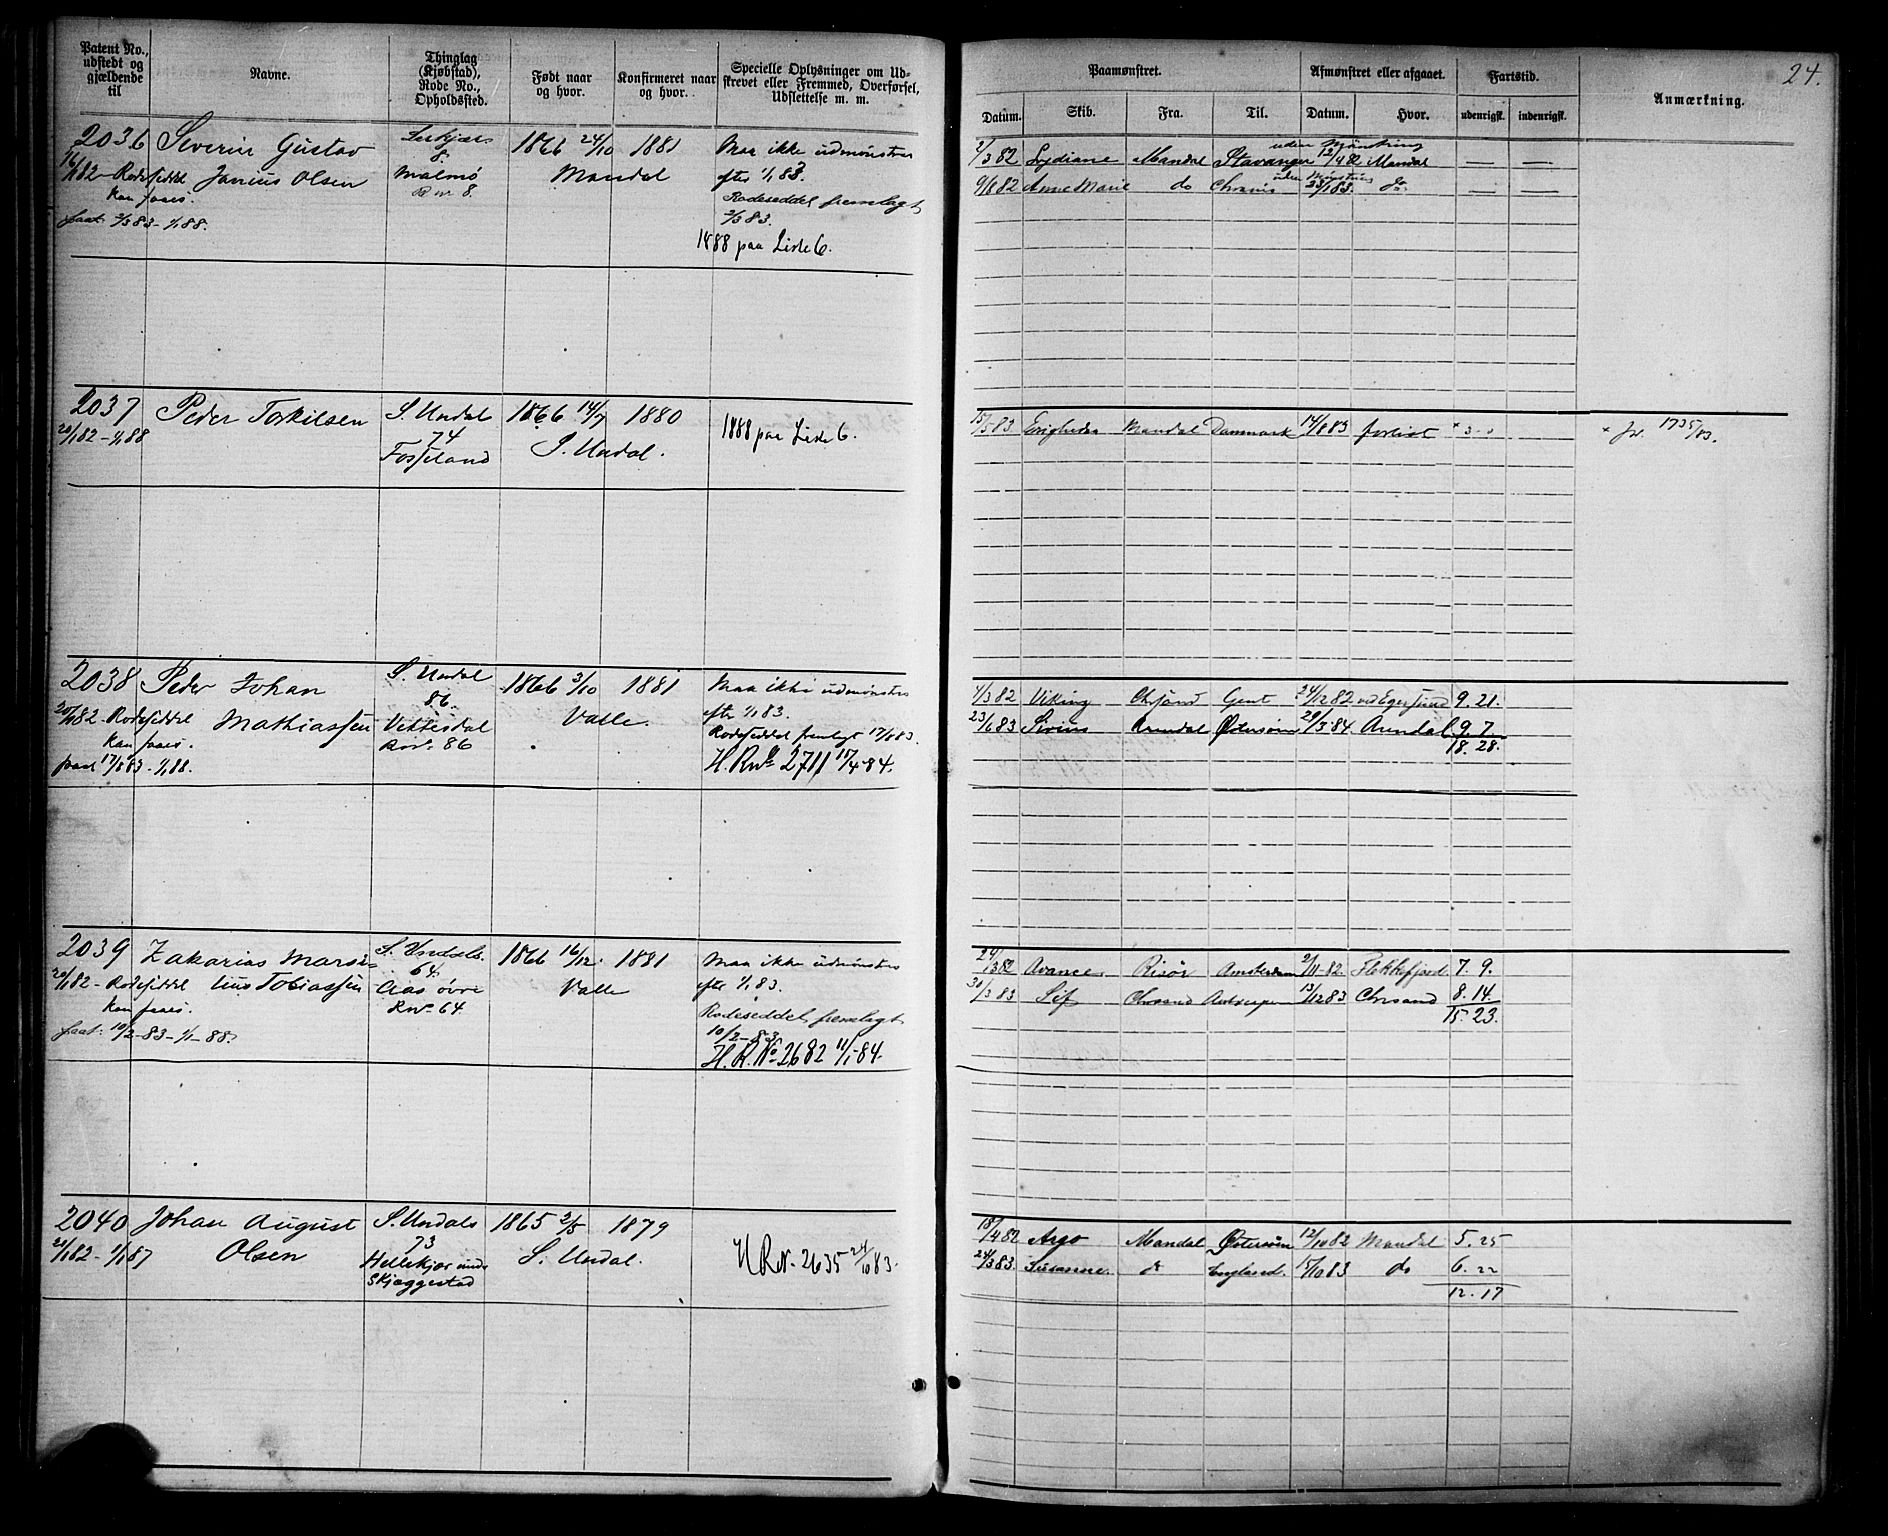 24.
Patent No., udstedt og gjældende til
Navne.
Thinglag (Kjøbstad), Rode No., Opholdssted.
Født naar og hvor.
Konfirmeret naar og hvor.
Specielle Oplysninger om Udskrevet eller Fremmed, Overførsel, Udslettelse m. m.
Paamønstret.
Afmønstret eller afgaaet.
Fartstid.
Anmærkning.
Datum. Skib. Fra. Til. Datum. Hvor. udenrigsk. indenrigsk.
2036 Severin Gustav 8. 1866 24/10 1881 Maa ikke udmønstres
16/1 82 - Rodeseddel Janius Olsen Malmö Mandal efter 1/1 83.
kan faaes. R nr 8. Rodeseddel fremlagt
faat: 2/3 83 - 1/1 88. 2/3 83.
1888 paa Liste 6.
uden Mønstring
2/3 82 Lydiane Mandal Stavanger 12/4 82 Mandal — —
9/8 82 Anne Marie do Chrania 23/1 83. do — —
2037 Peder Torkilsen S. Undal 1866 14/7 1880 1888 paa Liste 6.
20/1 82 - 1/1 88 74 S. Undal.
Fosseland
15/5 83 Enigheden Mandal Danmark 14/8 83 forlist × 3 - × Jr. 1735/83.
2038 Peder Johan S. Undal 1866 3/10 1881 Maa ikke udmønstres
86.
20/1 82 - Rodeseddel Mathiassen Vittesdal Valle. efter 1/1 83.
kan faaes. R no. 86 Rodeseddel fremlagt 17/1 83.
faat 17/1 83 - 1/1 88. H. R no 2711 15/4 84.
1/3 82 Viking Chrsand Gent 24/12 82 ved Egersund 9. 21.
23/6 83 Sirius Arendal Østersøen 29/3 84 Arendal 9. 7.
18. 28.
2039 Zakarias Marse- S. Undals. 1866 16/12. 1881 Maa ikke udmønstres
64.
20/1 82 - Rodeseddel lius Tobiassen Aas øvre Valle efter 1/1 83.
kan faaes. R no 64 Rodeseddel fremlagt
faat: 10/2 - 83 - 1/1 - 88. 10/2 - 83
H. R. No 2682 11/1 - 84.
24/3 82 Avance Risør Amsterdam 2/11 - 82. Flekkefjord 7. 9.
30/3 83 Sif Chrsand Antwerpen 13/12 83 Chrsand 8. 14.
15. 23.
2040 Johan August S. Undals 1865 2/5 1879
20/1 82 - 1/1 87 Olsen 73 S. Undal. H R N. 2635 24/10 83.
Hellekjær under
Skjeggestad
18/4 82 Argo Mandal Østersøen 12/10 82 Mandal 5. 25
24/3 83. Susanne do England. 15/10 83 do 6. 22
12. 17